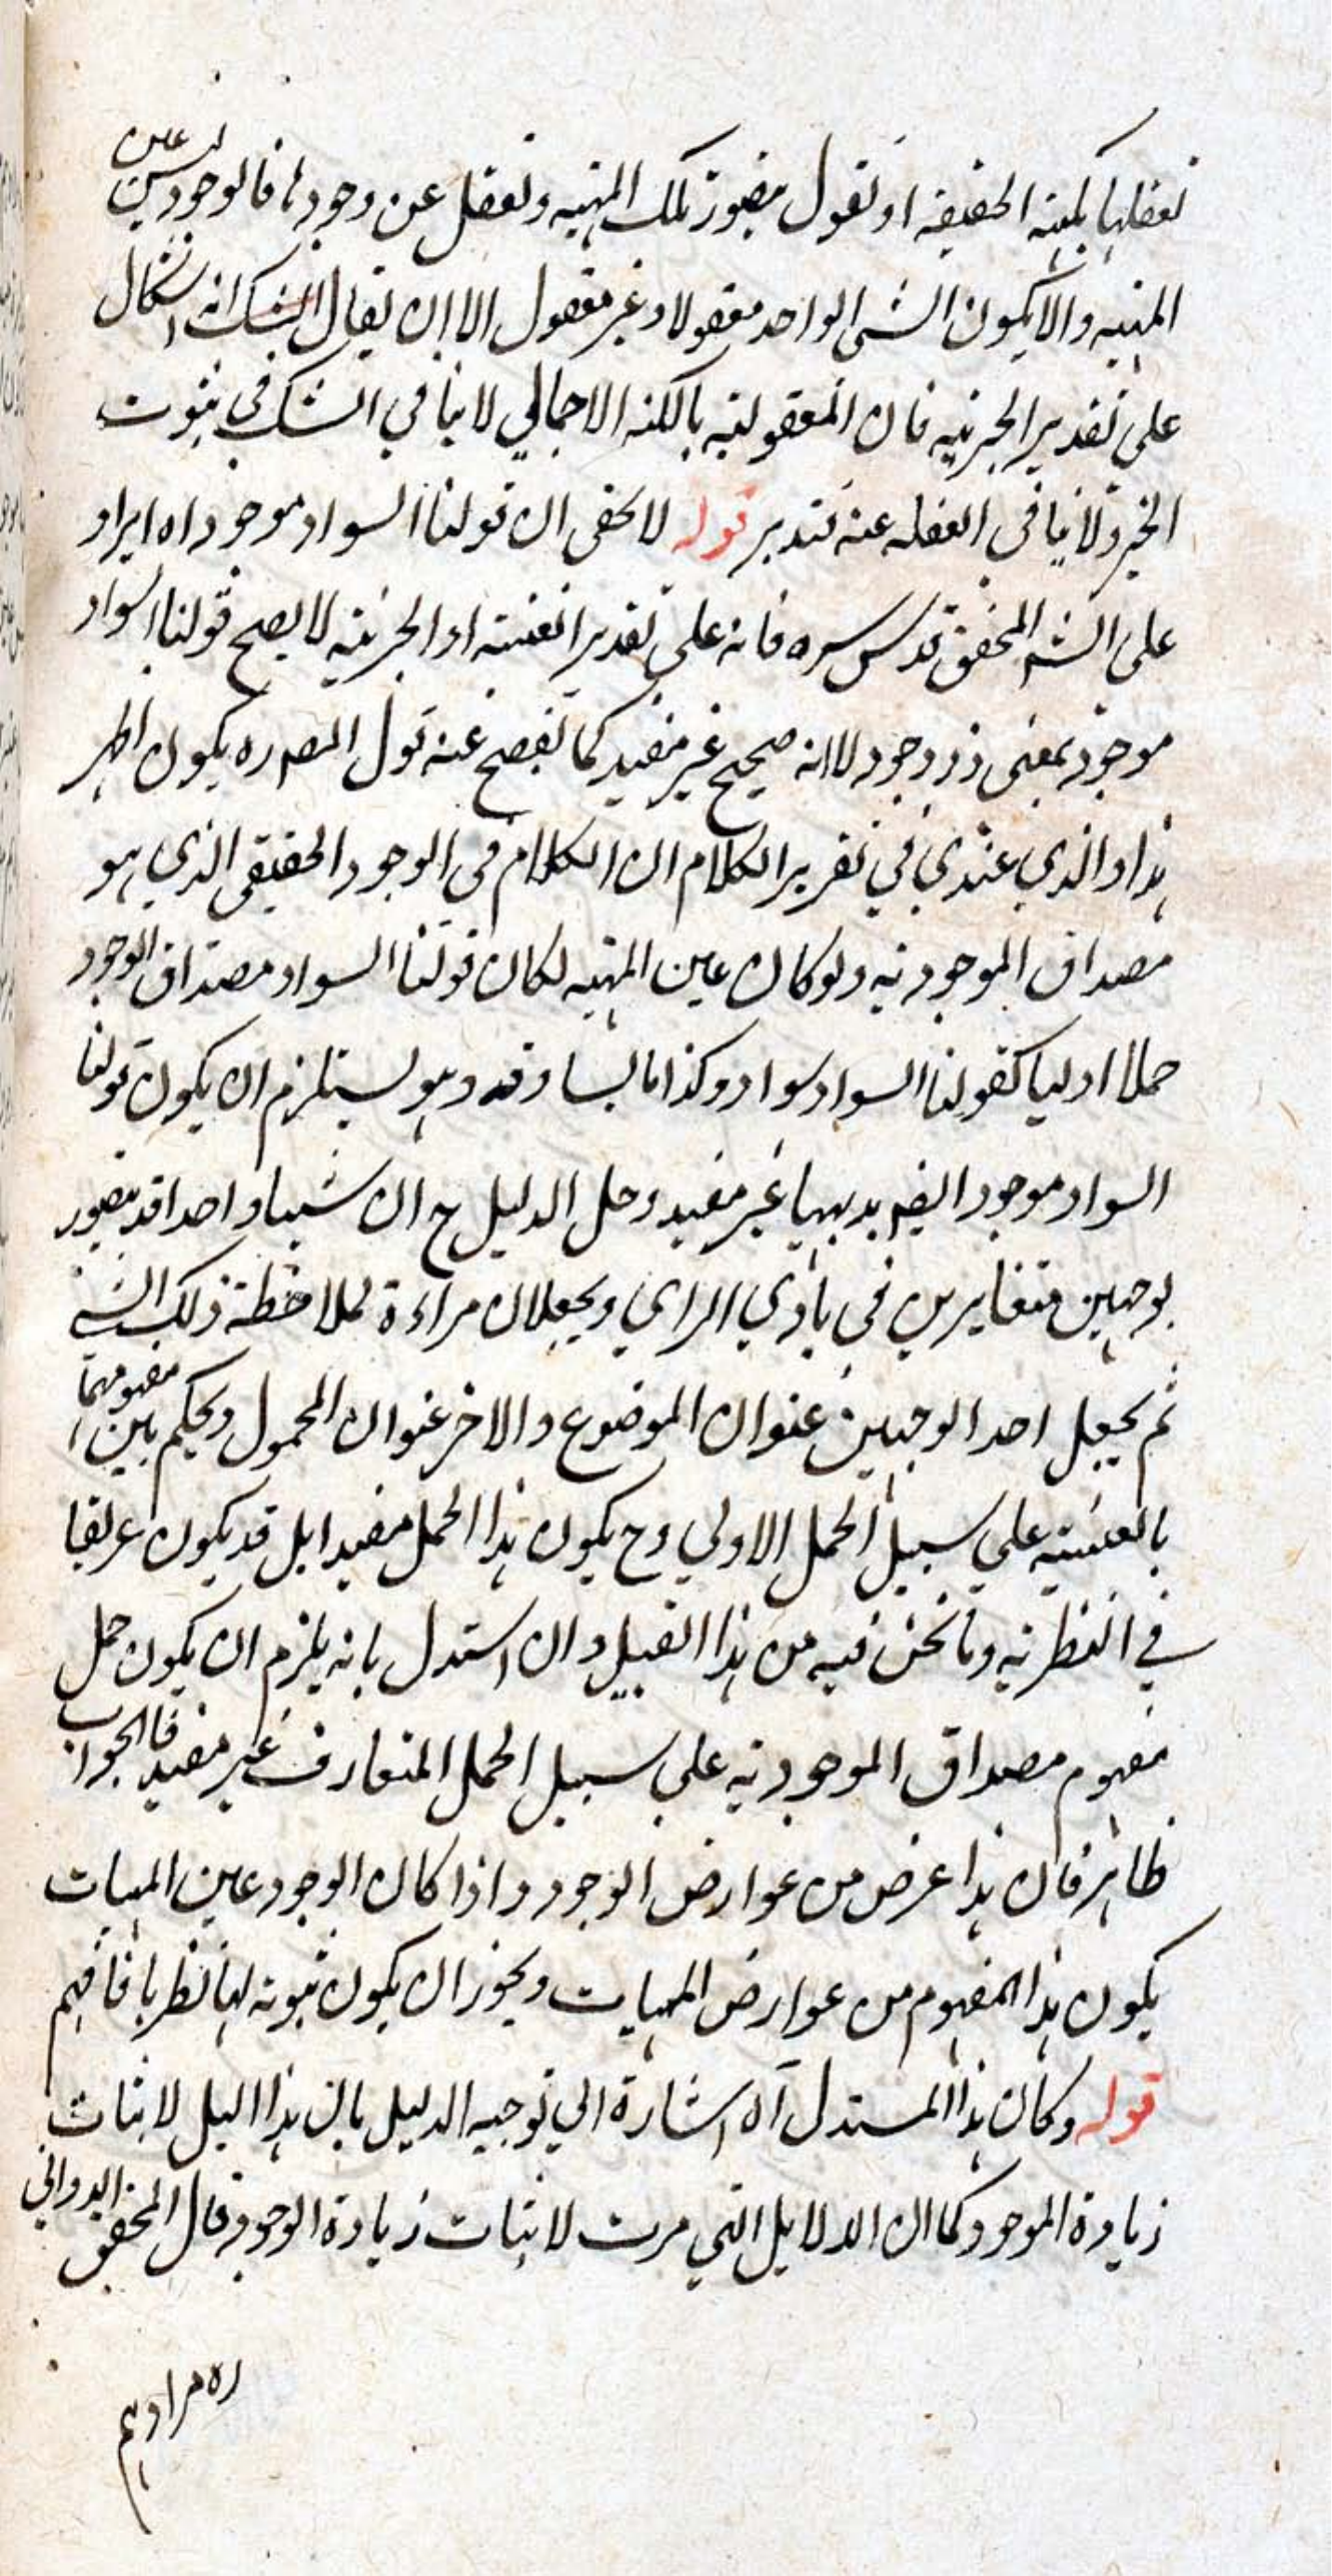 نعقلها بكنهه الحقيقة او نقول بتصور تلك المهية ونعقل عن وجودها فالوجود ليس عين
المهية والا يكون الشى الواحد معقولا وغير معقول الا ان يقال الشك انه اشكال
على تقدير الجزئية فان المعقولية بالكنه الاجمالي لا ينافي الشك في ثبوت
الجزء ولا ينافي الغفلة عنه فتدبر قوله لا يخفى ان قولنا السواد موجود اه ايراد
على الشم المحقق قدس سره فانه على تقدير العينية او الجزئية لا يصح قولنا السواد
موجود بمعنى ذو وجود لا انه صحيح غير مفيد كما يفصح عنه قول المصره يكون اظهر
هذا والذي عندي في تقرير الكلام ان الكلام في الوجود الحقيقى الذي هو
مصداق الموجودية ولو كان عين المهية لكان قولنا السواد مصداق الوجود
حملا اوليا كقولنا السواد سواد وكذا ما يساوقه وهو يستلزم ان يكون قولنا
السواد موجود ايضه بديهيا غير مفيد وحل الدليل ح ان شيئا واحدا قد يتصور
بوجهين متغايرين في بادي الراي ويجعلان مراءة لملاحظة ذلك الشى
ثم يجعل احد الوجهين عنوان الموضوع والاخر عنوان المحمول ويحكم بين مفهومهما
بالعينية على سبيل الحمل الاولي وح يكون هذا الحمل مفيدا بل قد يكون عريقا
في النظرية وما نحن فيه من هذا القبيل وان استدل بانه يلزم ان يكون حمل
مفهوم مصداق الموجودية على سبيل الحمل المتعارف غير مفيد فالجواب
ظاهر فان هذا عرض من عوارض الوجود واذا كان الوجود عين المهيات
يكون هذا المفهوم من عوارض المهيات ويجوز ان يكون ثبوته لها نظريا فافهم
قوله وكان هذا المستدل آه اشارة الي توجيه الدليل بان هذا اليل لاثبات
زيادة الموجود كما ان الدلايل التي مرت لاثبات زيادة الوجود قال المحقق الدواني
ره مرادهم